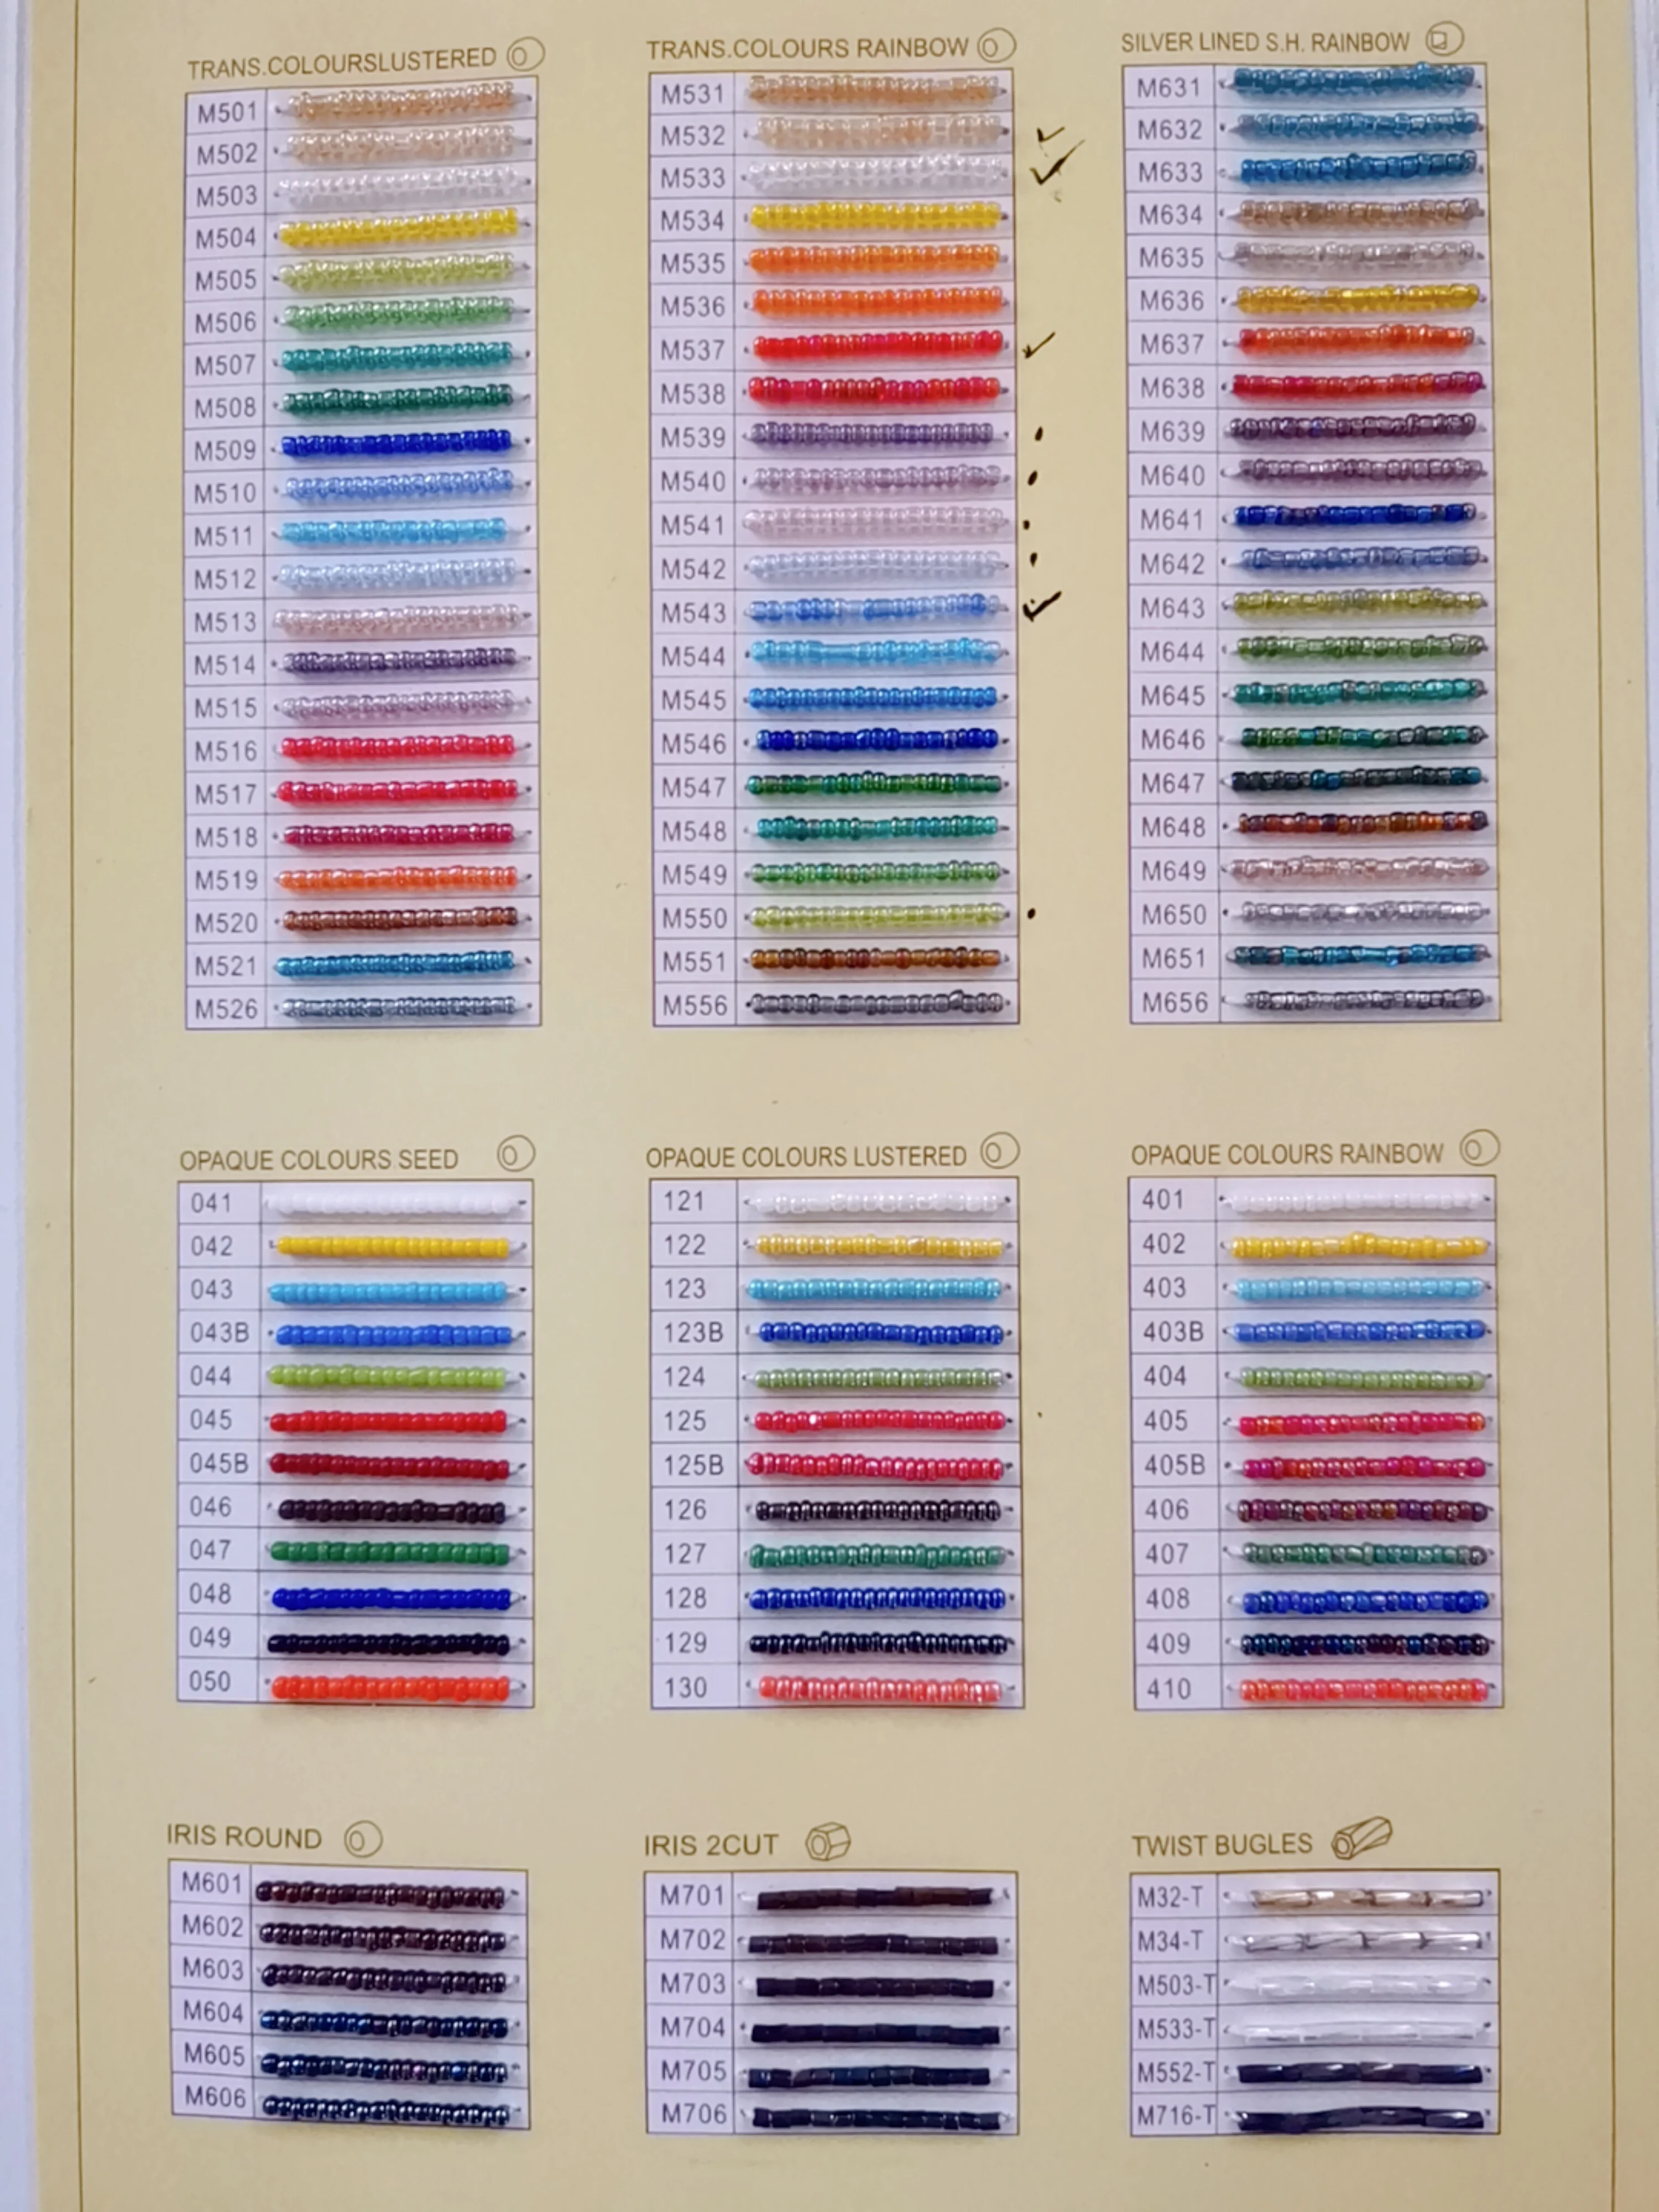 TRANS.COLOURSLUSTERED
M501
M502
M503
M504
M505
M506
M507
M508
M509
M510
M511
M512
M513
M514
M515
M516
M517
M518
M519
M520
M521
M526
TRANS.COLOURS RAINBOW
M531
M532
M533
M534
M535
M536
M537
M538
M539
M540
M541
M542
M543
M544
M545
M546
M547
M548
M549
M550
M551
M556
SILVER LINED S.H. RAINBOW
M631
M632
M633
M634
M635
M636
M637
M638
M639
M640
M641
M642
M643
M644
M645
M646
M647
M648
M649
M650
M651
M656
OPAQUE COLOURS SEED
041
042
043
043B
044
045
045B
046
047
048
049
050
OPAQUE COLOURS LUSTERED
121
122
123
123B
124
125
125B
126
127
128
129
130
OPAQUE COLOURS RAINBOW
401
402
403
403B
404
405
405B
406
407
408
409
410
IRIS ROUND
M601
M602
M603
M604
M605
M606
IRIS 2CUT
M701
M702
M703
M704
M705
M706
TWIST BUGLES
M32-T
M34-T
M503-T
M533-T
M552-T
M716-T